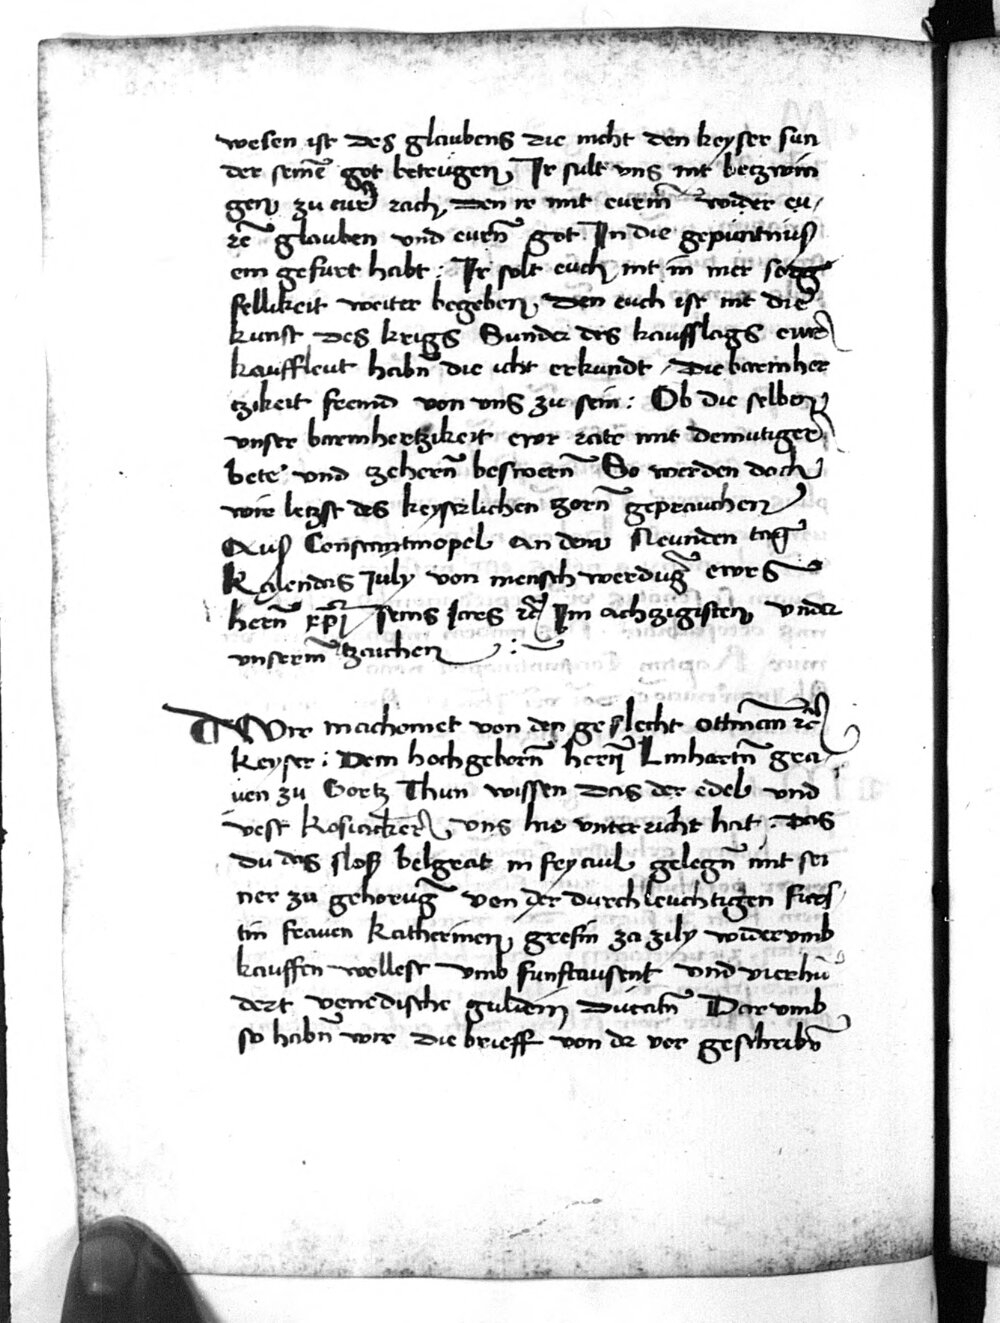 wesen ist des glaubens die nicht den keyser sun
der seinē got betrugen Ir sult uns nit beczwin
gen zu eurr rach, Den ir mit eurem wider eu,
rē glauben vnd eurn̄ got In die gepurtnuß
ein gefurt habt : Ir solt euch nit in mer sorgg
fellikeit weiter begeben, Den euch ist nit die
kunst des krigs Sunder des kaufflags ewr
kauffleut habn̄ die icht erkundt / Die barmher
czikeit fremd von uns zu sein : Ob die selben
unser barmhertzikeit ewr rate mit demutiger
bete vnd zehern̄ besweren̄ So werden doch
wir letzst des keyserlichen zorn̄ geprauchen
Auß Constantinopel an dem Neunden tag
Kalendas July von mensch werdūg ewrs
hern̄ xp̄i seins Iares rc̄ Im achzigisten, under
unserm̄ zaichen :
Wir machomet von den geslecht ottman rc̄
keyser : Dem hochgeborn̄ hern̄ Linhartn̄ gra
uen zu Gortz Thun wissen das der edel und
vest kosiacker uns hie unterricht hat . Das
du das sloß belgrat in feyaul gelegn̄ mit sei
ner zu gehorūg von der durchleuchtigen fürs
tin frawen Katherinen, grefin za zily widerumb
kauffen wollest umb funftausent und vierhū
dert venedische gulden ducatn̄ Darumb
so habn̄ wir die brieff von dr vor geschribn̄